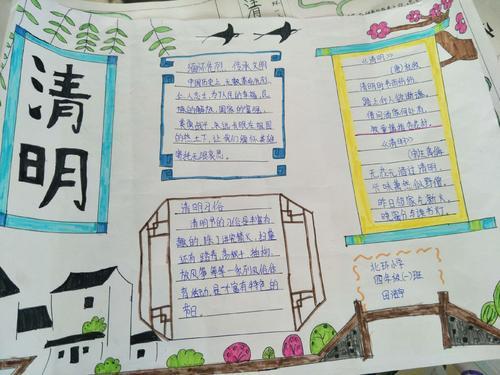 清明
缅怀先烈、传承文明
中国历史上无数革命先烈,
仁人志士为了人民的幸福,民
族的解放,国家的富强,
英勇战斗,永远长眠在祖国
的热土下,让我们缅怀英雄
寄托无限哀思。
《清明》
(唐)杜牧
清明时节雨纷纷,
路上行人欲断魂。
借问酒家何处有,
牧童遥指杏花村。
《清明》
无花无酒过清明,
兴味萧然似野僧。
昨日邻家乞新火,
晓窗分与读书灯。
清明习俗
清明节的习俗是丰富有
趣的,除了讲究禁火、扫墓
还有踏青、荡秋千、
放风筝等等一系列风俗体
育活动,是个富有特色的
节日。
北环小学
四年级(一)班